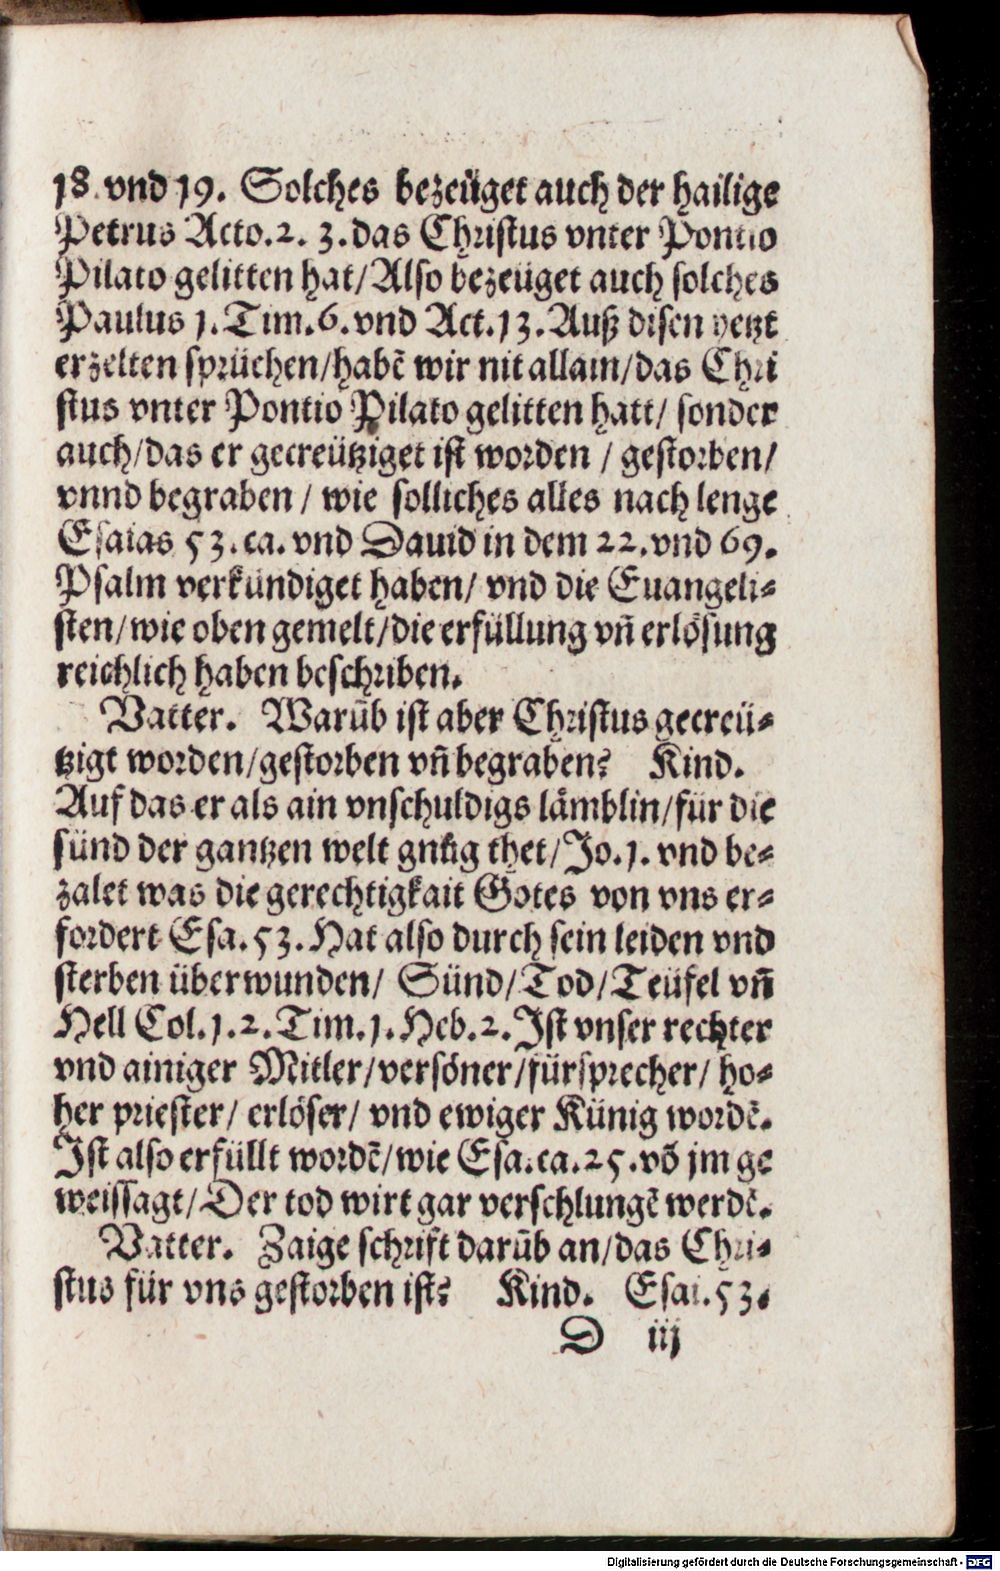 18. vnd 19. Solches bezeüget auch der hailige
Petrus Acto. 2. 3. das Christus vnter Pontio
Pilato gelitten hat/ Also bezeüget auch solches
Paulus 1. Tim. 6. vnd Act. 13. Auß disen yetzt
erzelten sprüchen/ habē wir nit allain/ das Chri
stus vnter Pontio Pilato gelitten hatt/ sonder
auch/ das er gecreütziget ist worden / gestorben/
vnnd begraben / wie solliches alles nach lenge
Esaias 53. ca. vnd Dauid in dem 22. vnd 69.
Psalm verkündiget haben/ vnd die Euangeli-
sten/ wie oben gemelt/ die erfüllung vñ erlösung
reichlich haben beschriben.
Vatter. Warūb ist aber Christus gecreü-
tzigt worden/ gestorben vñ begraben? Kind.
Auf das er als ain vnschuldigs lämblin/ für die
sünd der gantzen welt gnůg thet/ Jo. 1. vnd be-
zalet was die gerechtigkait Gotes von vns er-
fordert Esa. 53. Hat also durch sein leiden vnd
sterben überwunden/ Sünd/ Tod/ Teüfel vñ
Hell Col. 1. 2. Tim. 1. Heb. 2. Ist vnser rechter
vnd ainiger Mitler/ versöner/ fürsprecher/ ho-
her priester/ erlöser/ vnd ewiger Künig wordē.
Ist also erfüllt wordē/ wie Esa. ca. 25. vō jm ge
weissagt/ Der tod wirt gar verschlungē werdē.
Vatter. Zaige schrift darūb an/ das Chri-
stus für vns gestorben ist? Kind. Esai. 53.
D iij
Digitalisierung gefördert durch die Deutsche Forschungsgemeinschaft - DFG